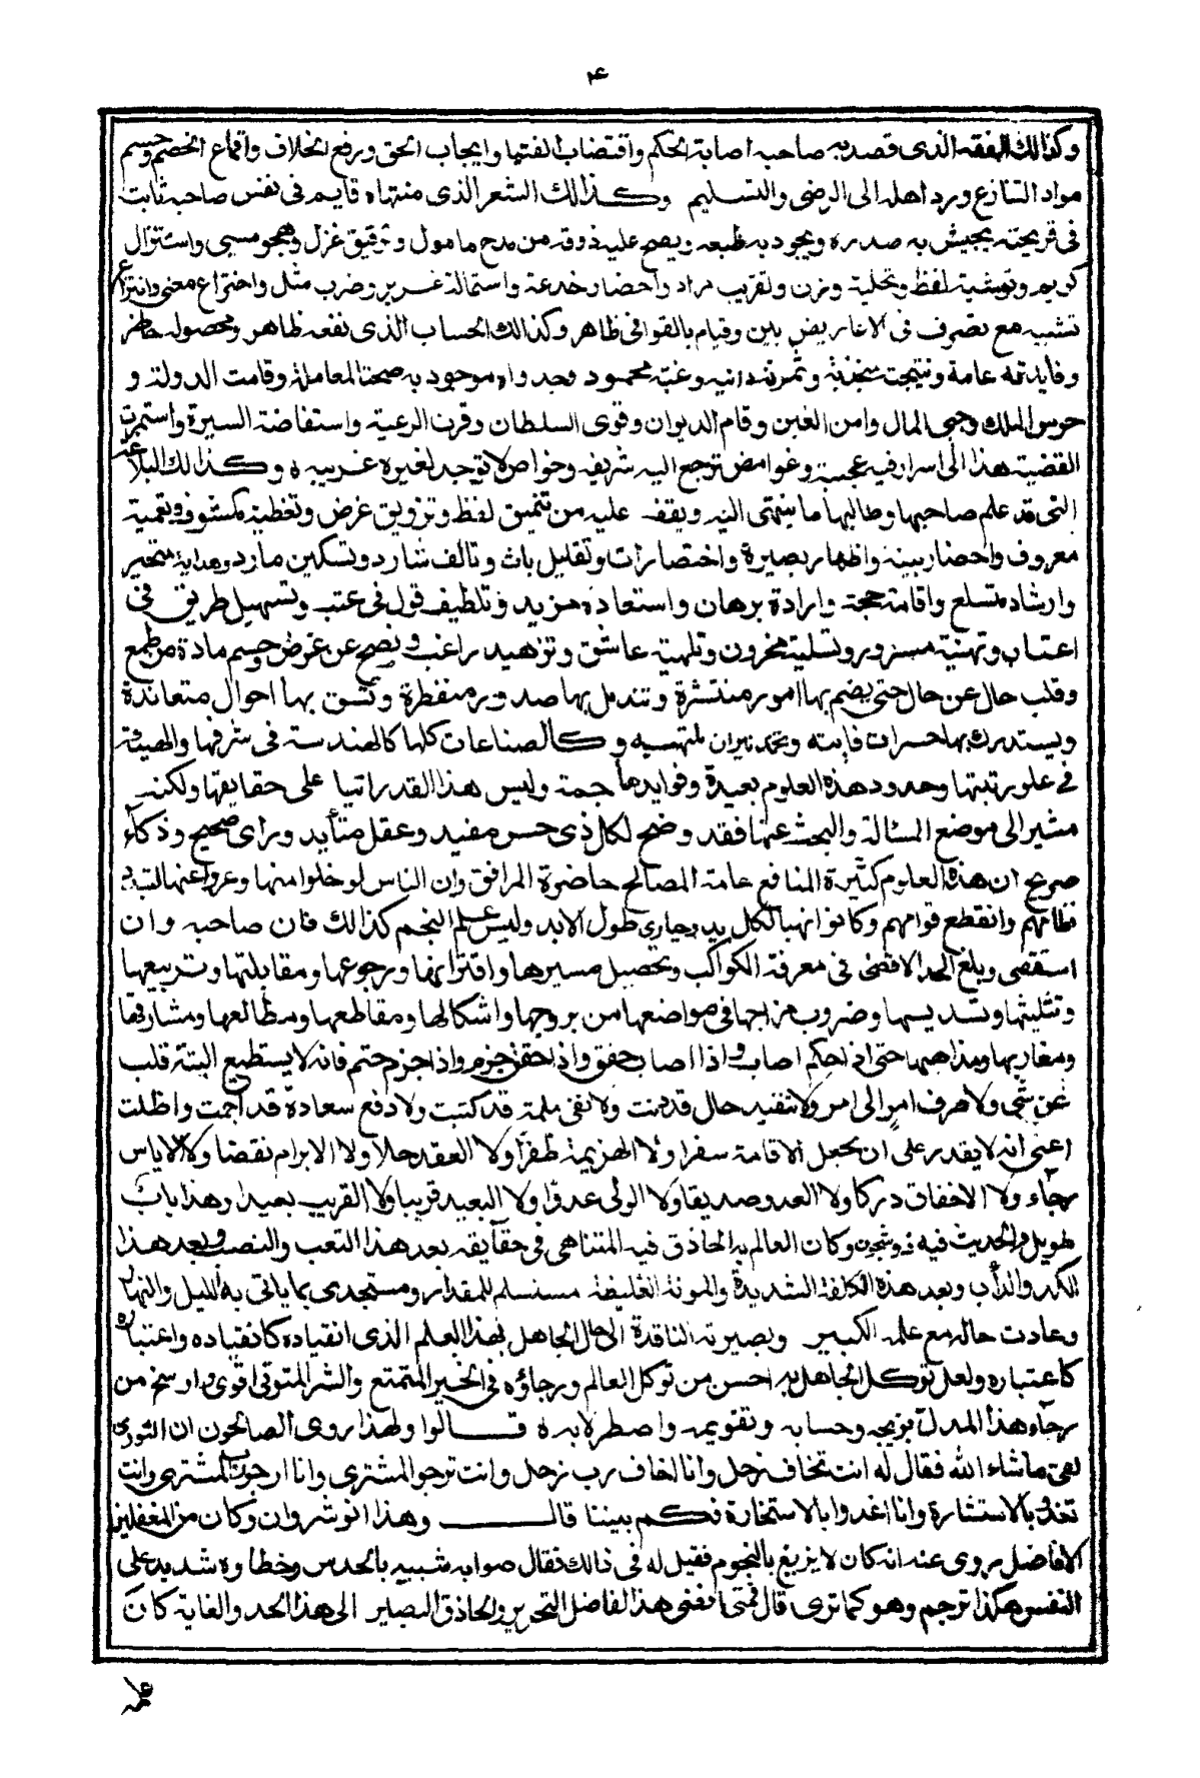 ۴
وكذالك الفقه الذى قصد به صاحبه اصابة الحكم واقتضاب الفتيا وايجاب الحق ورفع الخلاف واقماع الخصم وحسم
مواد التنازع ورد اهله الى الرضى والتسليم وكذالك الشعر الذى منتهاه قايم فى نفس صاحبه ثابت
فى قريحته يجيش به صدره ويجود به طبعه ويصح عليه ذوقه من مدح مامول وترقيق غزل وهجو مسى واستنزال
كريم وتوشية لفظ وتحلية وزن وتقريب مراد واحضار خدعة واستمالة غرير وضرب مثل واختراع معنى وانتزاع
تشبيه مع تصرف فى الاعاريض بين وقيام بالقوافى ظاهر وكذالك الحساب الذى نفعه ظاهر ومحصوله حاضر
وفايدته عامة ونتيجت وثمرته دانيه وغبه محمود وجدواه موجود به صحت المعاملة وقامت الدولة و
حرس الملك وجبى المال وامن الغبن وقام الديوان وقوى السلطان وقرت الرعية واستفاضة السيرة واستمرت
القضية هذا الى اسرار فيه عجيبة وغوامض ترجع اليه شريفه وخواص لا توجد لغيره غريبه وكذالك البلاغة
التى قد علم صاحبها وطالبها ما ينتهى اليه ويقف عليه من تنميق لفظ وتزويق غرض وتغطية مكشوف وتعمية
معروف واحضار بينة واظهار بصيرة واختصار ات وتقليل باث وتالف شارد وتسكين مارد وهداية متحير
وارشاد متسلع واقامة حجة وارادة برهان واستعاذة مزيد وتلطيف قول فى عتب وتسهيل طريق فى
اعتاب وتهنية مسرور وتسلية محزون وتلهية عاشق وتزهيد راغب ونصح عن عرض وحسم مادة من طمع
وقلب حال عن حال حتى يضم بها امور منتشرة وتندمل بها صدور منفطرة وتتسق بها احوال متعاندة
ويستدرك بها حسرات فايته وتخمد نيران ملتهبه وكالصناعات كلها كالهندسة فى شرفها والهيئة
فى علو رتبتها وحدود هذه العلوم بعيدة وفوايدها جمة وليس هذا القدر اتيا على حقايقها ولكنه
مشير الى موضع المسالة والبحث عنها فقد وضح لكل ذى حس مفيد وعقل متأيد وراى صحيح وذكاء
صريح ان هذه العلوم كثيرة المنافع عامة المصالح حاضرة المرافق وان الناس لو خلوا منها وعروا عنها لتبدد
نظامهم وانقطع قوامهم وكانوا نهبا لكل يد وحيارى طول الابد وليس علم النجم كذالك فان صاحبه وان
استقصى وبلغ الحد الاقصى فى معرفة الكواكب وتحصيل مسيرها واقترانها ورجوعها ومقابلتها وتربيعها
وتثليثها وتسديسها وضروب مزاجها فى مواضعها من بروجها واشكالها ومقاطعها ومطالعها ومشارقها
ومغاربها ومذاهبها حتى اذ احكم اصاب واذا اصاب حقق واذ احقق جزم واذ اجزم حتم فانه لا يستطيع البتة قلب
عن شى ولا صرف امر الى امر ولا تنفيد حال قد دنت ولا نفى ملمة قد كتبت ولا دفع سعادة قد اجمت واظلت
اعنى انه لا يقدر على ان يجعل الاقامة سفرا ولا الهزيمة ظفرا ولا العقد حلا ولا الابرام نقضا ولا الاياس
رجآء ولا الاخفاق دركا ولا العدو صديقا ولا الولى عدوا ولا البعيد قريبا ولا القريب بعيدا وهذا باب
طويل والحديث فيه ذو شجون وكان العالم به الحاذق فيه المتناهى فى حقآيقه بعد هذا التعب والنصب وبعد هذا
الكد والدأب وبعد هذه الكلفة الشديدة والمونة الغليظة مستسلم للمقدار ومستجدى بما ياتى به الليل والنهار
وعادت حاله مع علمه الكبير وبصيرته الناقدة الى حال الجاهل بهذا العلم الذى انقياده كانقياده واعتباره
كاعتباره ولعل توكل الجاهل به احسن من توكل العالم ورجاؤه فى الخير المتمتع والشر المتوقى اقوى وارسخ من
رجآء هذا المدل بزيجه وحسابه وتقويمه واصطرلابه قالوا ولهذا روى الصالحون ان الثورى
لقى ماشاء الله فقال له انت تخاف زحل وانا اخاف رب زحل وانت ترجو المشترى وانا ارجو رب المشترى وانت
تغدو بالاستشارة وانا اغدوا بالاستخارة فكم بيننا قال وهذا انوشروان وكان من المغفلين
الافاضل يروى عنه انه كان لا يزيغ بالنجوم فقيل له فى ذالك فقال صوابه شبيه بالحدس وخطاوه شديد على
النفس هكذا ترجم وهو كما ترى قال فمتى افضى هذا الفاضل النحرير والحاذق البصير الى هذا الحد والغاية كان
علمه